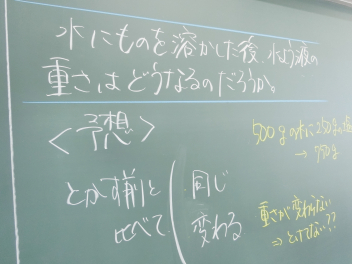 水にものを溶かした後、水よう液の
重さはどうなるのだろうか。
<予想>
とかす前と
比べて
同じ
変わる
500gの水に250gの
→ 750g
重さが変わらない
⇒ とけてない??